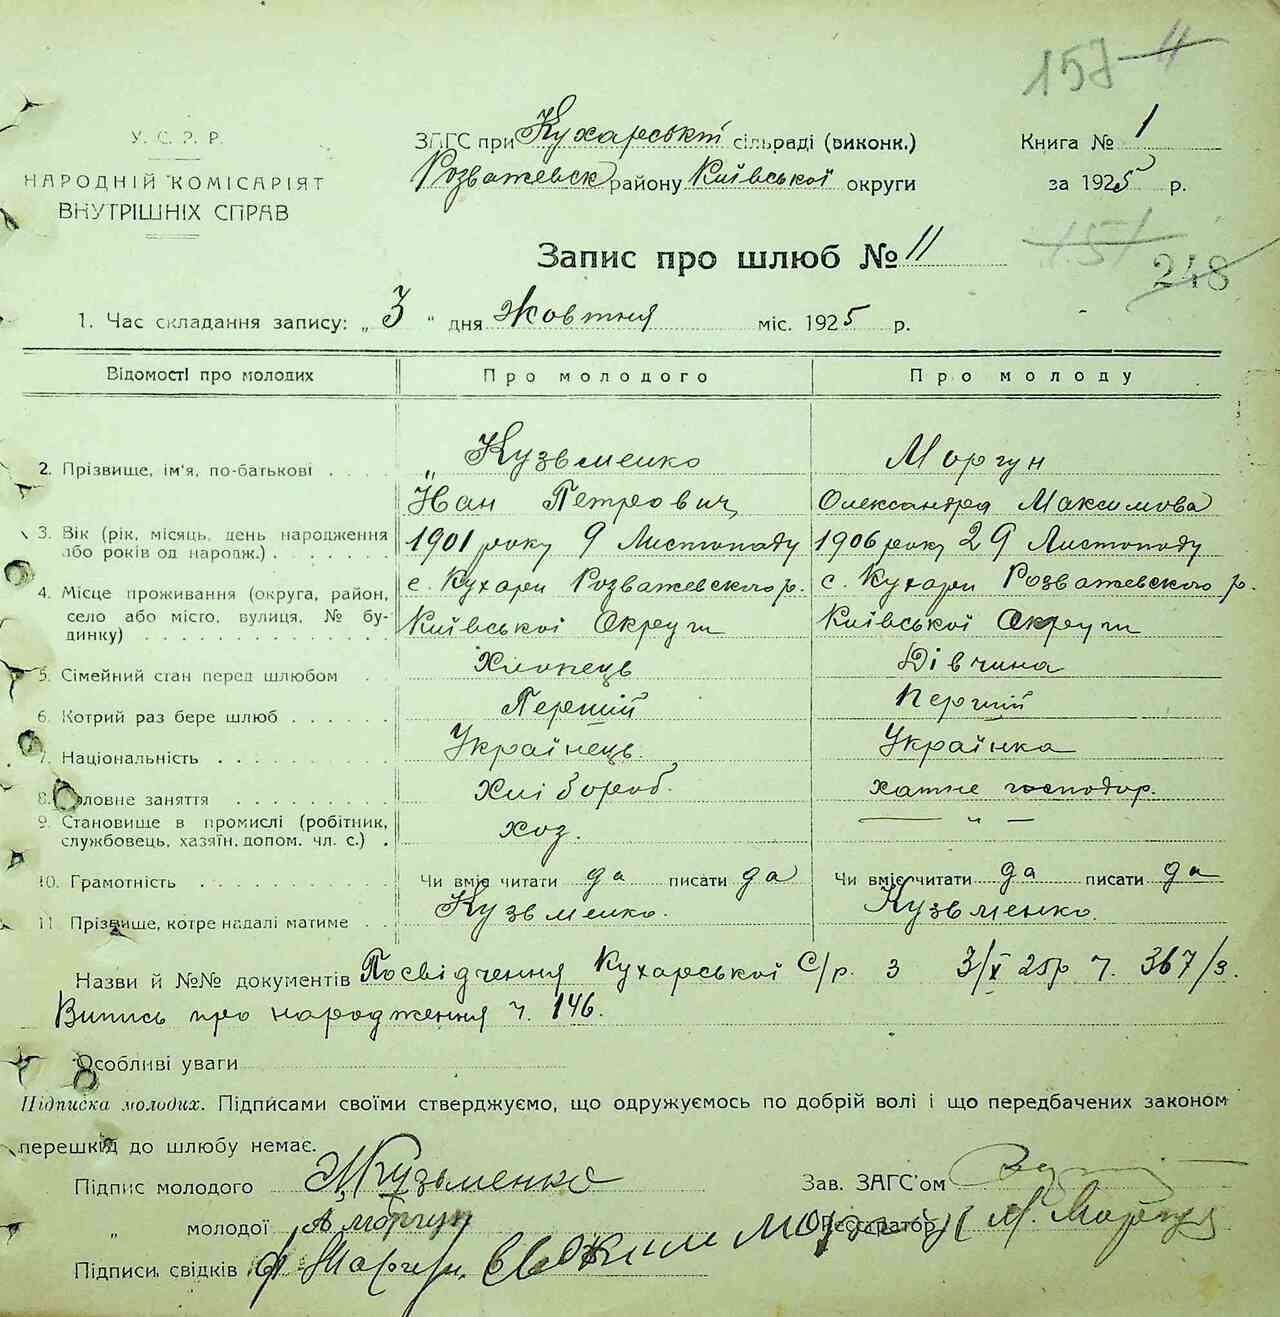 157 11
У. С. Р. Р.
НАРОДНІЙ КОМІСАРІЯТ
ВНУТРІШНІХ СПРАВ
ЗАГС при Кухарські сільраді (виконк.)
Розважевськ району Київської округи
Книга № 1
за 1925 р.
151
248
Запис про шлюб № 11
1. Час складання запису: „ 3 " дня Жовтня міс. 1925 р.
Відомості про молодих Про молодого Про молоду
2. Прізвище, ім'я, по-батькові . . . . Кузьменко Моргун
Іван Петрович Олександра Максимова
3. Вік (рік, місяць, день народження 1901 року 9 Листопаду 1906 року 29 Листопаду
або років од народж.) . . . . . . . с. Кухари Розважевского р. с. Кухари Розважевского р.
4. Місце проживання (округа, район,
село або місто, вулиця, № бу- Київської Округи Київської Округи
динку) . . . . . . . . . . . . . .
5. Сімейний стан перед шлюбом . . Хлопець Дівчина
6. Котрий раз бере шлюб . . . . . . Перший Перший
7. Національність . . . . . . . . . . Українець. Українка
8. Головне заняття . . . . . . . . . . Хлібороб. хатне господор.
9. Становище в промислі (робітник, — „ —
службовець, хазяїн, допом. чл. с.) . хоз.
10. Грамотність . . . . . . . . . . . Чи вміє читати да писати да Чи вміє читати да писати да
11 Прізвище, котре надалі матиме . . Кузьменко. Кузьменко.
Назви й №№ документів Посвідчення Кухарської С/р. з 3/X 25р ч. 367/з.
Випись про народження ч. 146.
Особливі уваги
Підписка молодих. Підписами своїми стверджуємо, що одружуємось по добрій волі і що передбачених законом
перешкід до шлюбу немає.
Підпис молодого Кузьменко Зав. ЗАГС'ом
„ молодої А Моргун Реєстратор
Підписи свідків М. Моргун